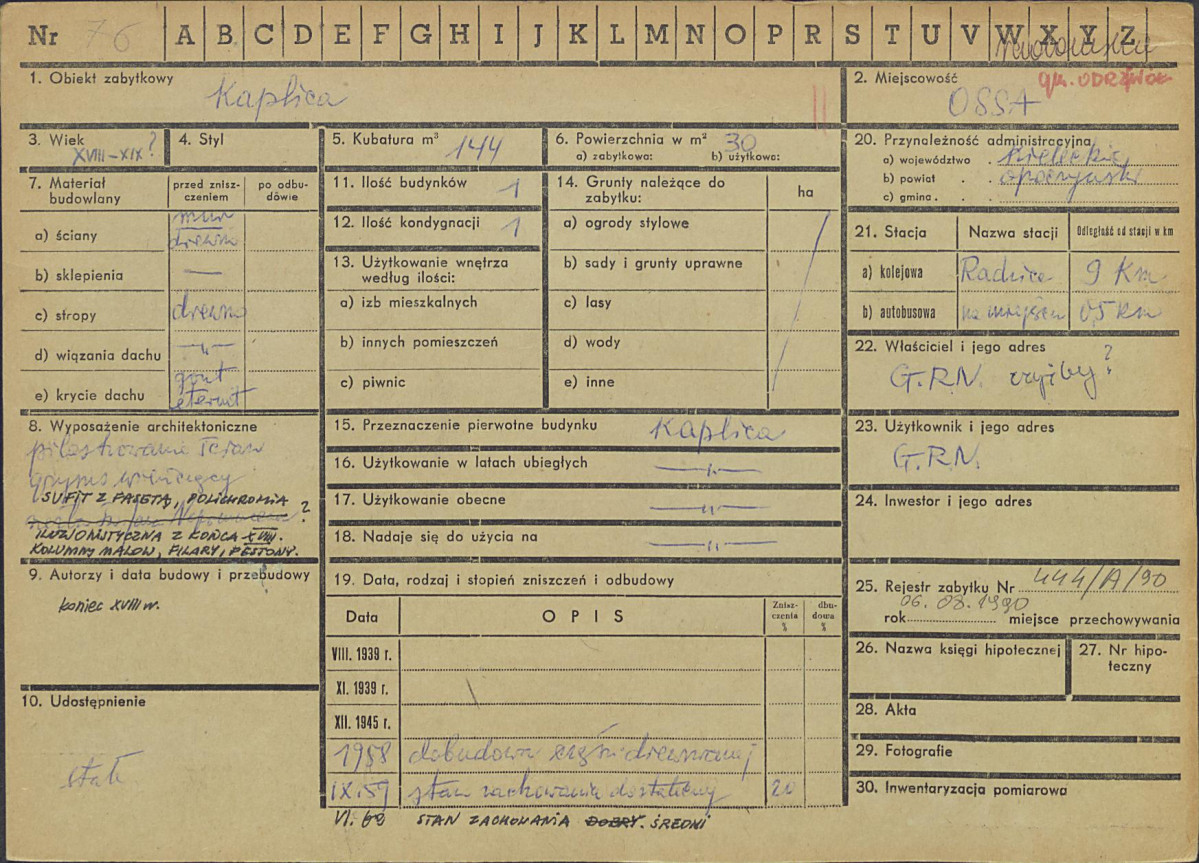 Nr 76 A B C D E F G H I J K L M N O P R S T U V W X Y Z
1. Obiekt zabytkowy
Kaplica
2. Miejscowość gm. ODRZYWÓŁ
OSSA
3. Wiek
XVIII–XIX?
4. Styl
5. Kubatura m³ 144
6. Powierzchnia w m² 30
a) zabytkowa: b) użytkowa:
20. Przynależność administracyjna
a) województwo . Kieleckie
b) powiat . . opoczyński
c) gmina . .
7. Materiał budowlany
przed zniszczeniem
po odbudowie
a) ściany mur drewn
b) sklepienia —
c) stropy drewno
d) wiązania dachu —"—
e) krycie dachu gont eternit
11. Ilość budynków 1
12. Ilość kondygnacji 1
13. Użytkowanie wnętrza
według ilości:
a) izb mieszkalnych
b) innych pomieszczeń
c) piwnic
14. Grunty należące do
zabytku:
ha
a) ogrody stylowe
b) sady i grunty uprawne
c) lasy
d) wody
e) inne
21. Stacja Nazwa stacji Odległość od stacji w km
a) kolejowa Radzice 9 Km
b) autobusowa na miejscu 0,5 km
22. Właściciel i jego adres
G.R.N. ?
8. Wyposażenie architektoniczne
pilastrowanie ścian
gzyms wieńczący
SUFIT Z FASETĄ, POLICHROMIA
ILUZJONISTYCZNA Z KOŃCA XVIII. ?
KOLUMNY MALOW, FILARY, FESTONY.
15. Przeznaczenie pierwotne budynku Kaplica
16. Użytkowanie w latach ubiegłych —"—
17. Użytkowanie obecne —"—
18. Nadaje się do użycia na —"—
23. Użytkownik i jego adres
G.R.N.
24. Inwestor i jego adres
9. Autorzy i data budowy i przebudowy
?
koniec XVIII w.
19. Data, rodzaj i stopień zniszczeń i odbudowy
Data OPIS Zniszczenia % dbudowa %
VIII. 1939 r.
XI. 1939 r.
XII. 1945 r.
1958 dobudowa części drewnianej
IX.59 stan zachowania dostateczny 20
VI. 60 STAN ZACHOWANIA DOBRY. ŚREDNI
25. Rejestr zabytku Nr 444/A/90
06. 08. 1990
rok miejsce przechowywania
26. Nazwa księgi hipotecznej
27. Nr hipoteczny
10. Udostępnienie
28. Akta
29. Fotografie
30. Inwentaryzacja pomiarowa